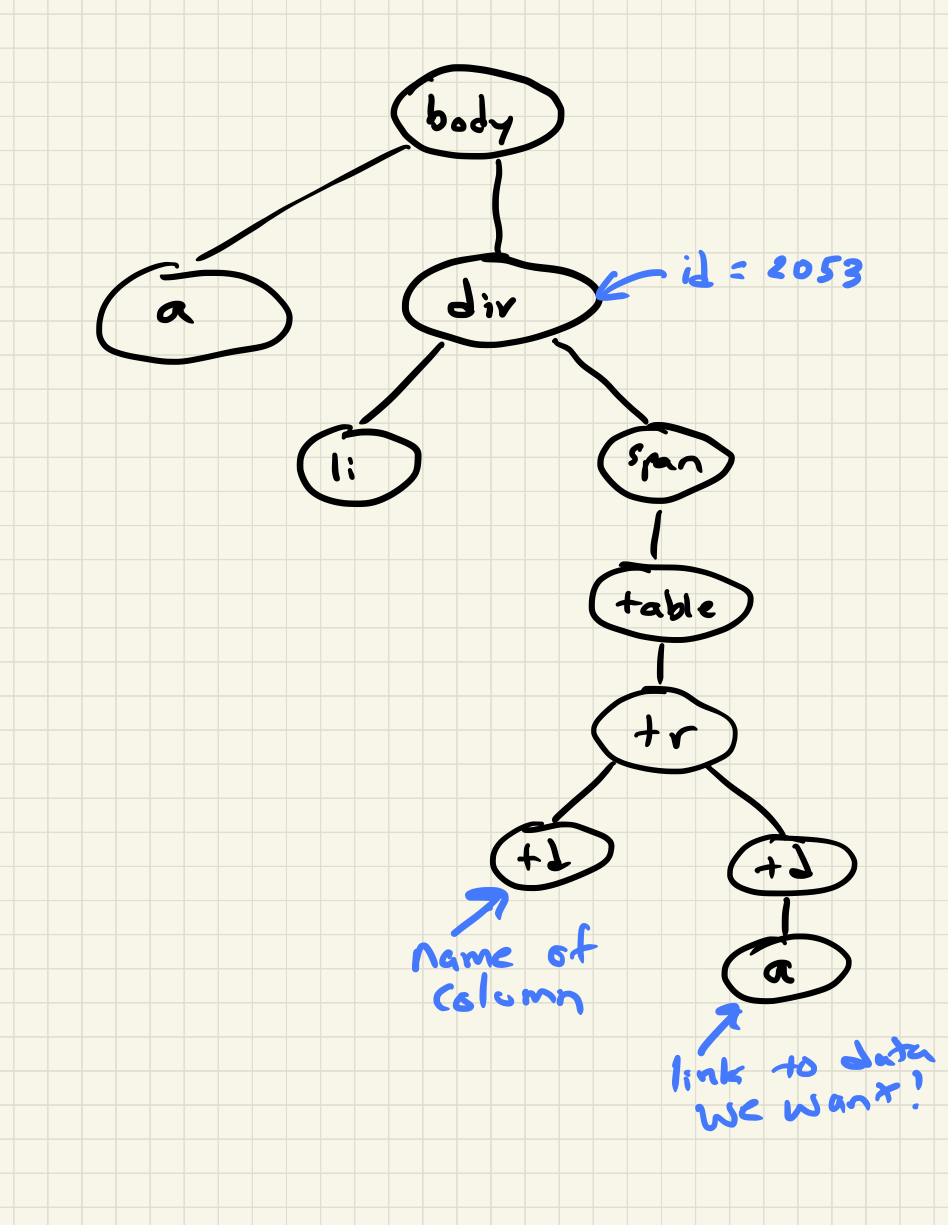 body
a
div
id = 2053
li
span
table
tr
td
td
name of
column
a
link to data
we want!